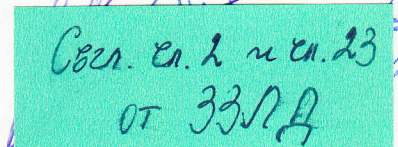 Съгл. чл. 2 и чл. 23
от ЗЗЛД